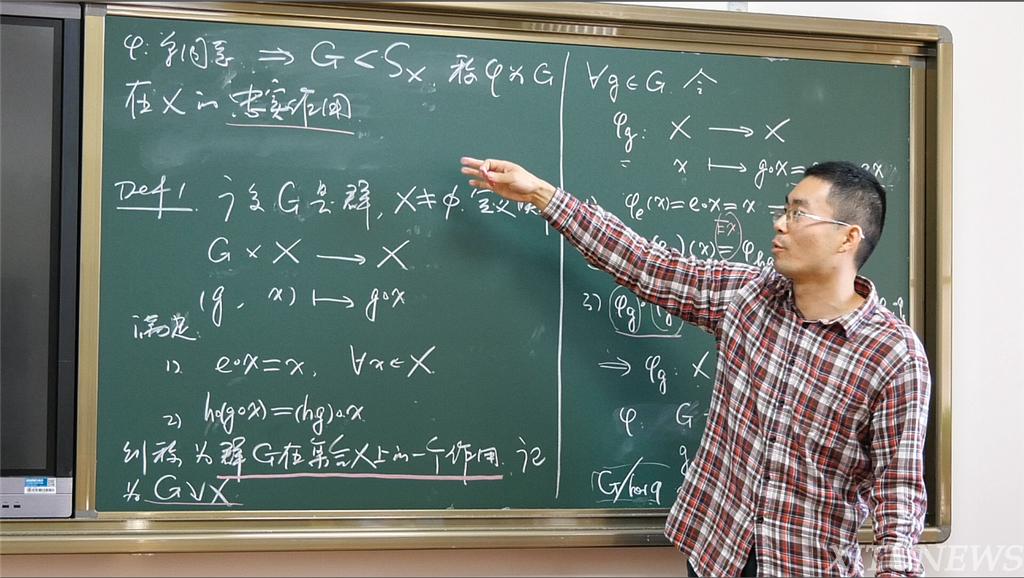 φ: 单同态 ⇒ G < S_X. 称 φ 为 G
在 X 的 忠实作用.
Def 1. 设 G 是群, X ≠ ϕ. 定义
G × X ⟶ X
(g, x) ⟼ g∘x
满足:
1) e∘x = x, ∀x ∈ X.
2) h∘(g∘x) = (hg)∘x
则称为群 G 在集合 X 上的一个作用. 记
为 G↷X
∀g ∈ G. 令
φ_g: X ⟶ X
x ⟼ g∘x =
φ_e(x) = e∘x = x
)(x) = φ_hg
EX
3) φ_g
⇒ φ_g: X
φ: G
g
G/
XTU NEWS